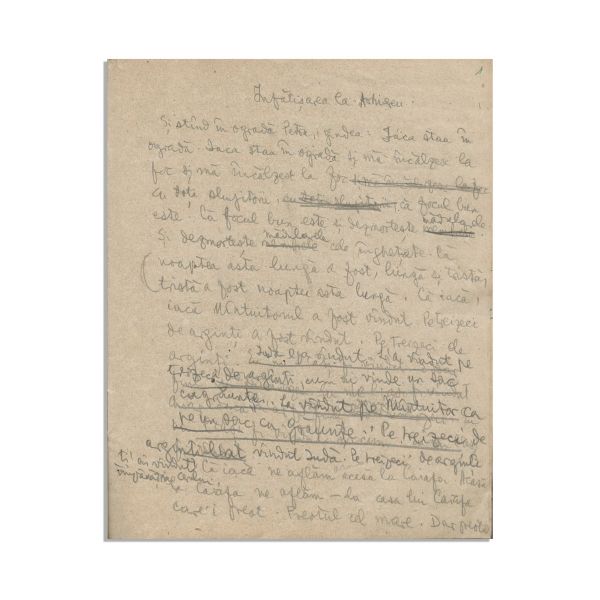 1
Înfățișarea la Arhiereu.
Și stînd în ogradă Petre, gîndea: Iaca stau în
ogradă. Iaca stau în ogradă și mă încălzesc la
foc și mă încălzesc la foc
cu toți slujitorii, că focul bun
este. Că focul bun este și dezmorțește mădulările
Și dezmorțește mădularele cele înghețate. Că
noaptea asta lungă a fost, lungă și tristă,
tristă a fost noaptea asta lungă. Că iaca,
iacă Mîntuitorul a fost vîndut. Pe treizeci
de arginți a fost vîndut. Pe treizeci de
arginți. Iuda l-a vîndut. L-a vîndut pe
treizeci de arginți, cum ai vinde un sac
cu grăunțe. L-a vîndut pe Mîntuitor ca
pe un sac cu grăunțe. Pe treizeci de
arginți l-a vîndut Iudă. Pe treizeci de arginți
ți-ai vîndut
Că iacă ne aflăm acasa la Caiafa. Acasă
la Caiafa ne aflăm – la casa lui Caiafa
care-i preot. Preotul cel mare. Dar preotu